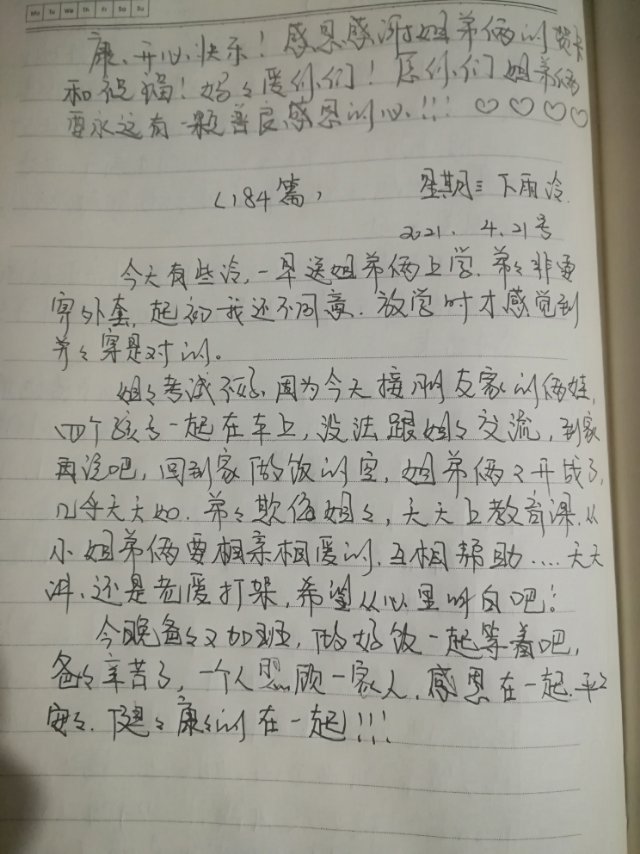 Mo Tu We Th Fr Sa Su
康、开心、快乐！感恩感谢姐弟俩的贺卡
和祝福！妈々爱你们！愿你们姐弟俩
要永远有一颗善良感恩的心！！！♡♡♡♡
（184篇） 星期三下雨冷
2021. 4. 21号
今天有些冷，一早送姐弟俩上学，弟々非要
穿外套，起初我还不同意，放学时才感觉到
弟々穿是对的。
姐々考试不好，因为今天接朋友家的俩娃，
四个孩子一起在车上，没法跟姐々交流，到家
再说吧，回到家做饭的空，姐弟俩又开战了，
几乎天天如此，弟々欺侮姐々，天天上教育课，从
小姐弟俩要相亲相爱的，互相帮助....天天
讲，还是老爱打架，希望从心里明白吧！
今晚爸々又加班，做好饭一起等着吧，
爸々辛苦了，一个人照顾一家人，感恩在一起，平々
安々、健々康々的在一起！！！